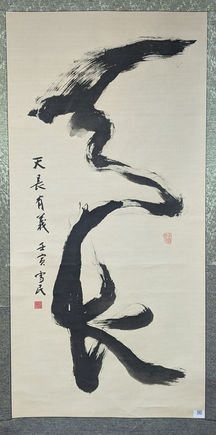 天長
天長有義 壬寅雪民